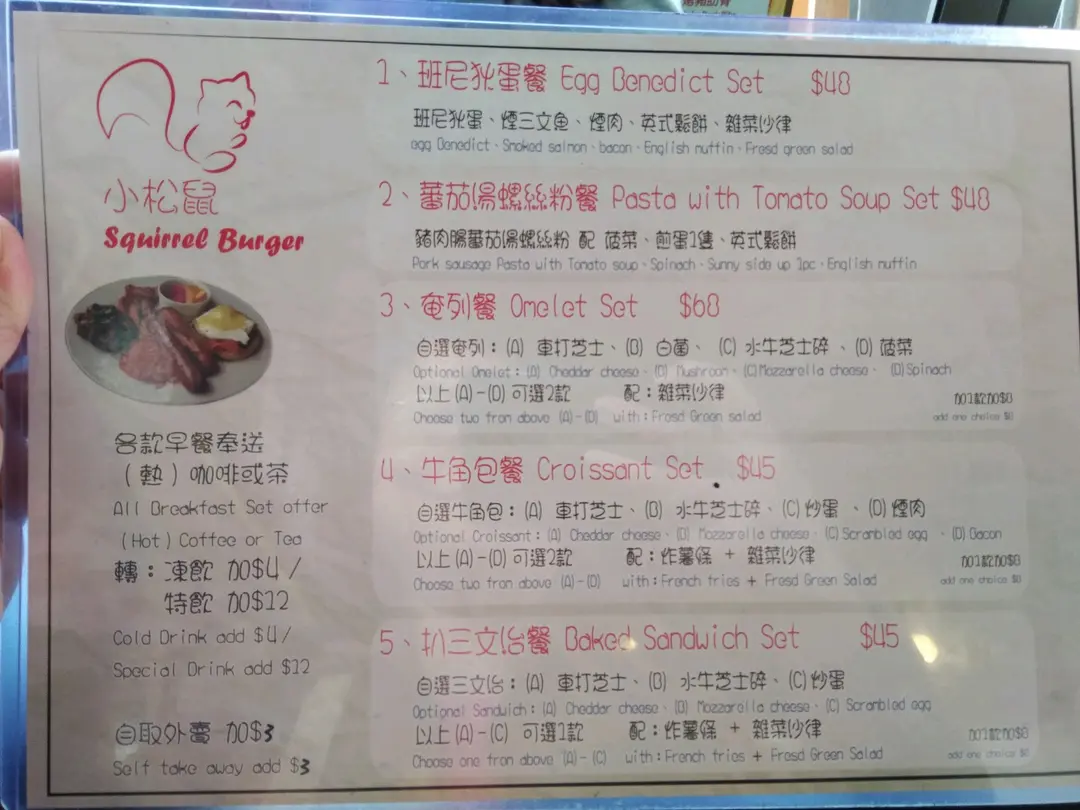 小松鼠
Squirrel Burger
各款早餐奉送
（熱）咖啡或茶
All Breakfast Set offer
(Hot) Coffee or Tea
轉：凍飲 加$4 /
特飲 加$12
Cold Drink add $4/
Special Drink add $12
自取外賣 加$3
Self take away add $3
1、班尼狄蛋餐 Egg Benedict Set $48
班尼狄蛋、煙三文魚、煙肉、英式鬆餅、雜菜沙律
egg Benedict、Smoked salmon、bacon、English nuffin、Fresd green salad
2、蕃茄湯螺絲粉餐 Pasta with Tomato Soup Set $48
豬肉腸蕃茄湯螺絲粉 配 菠菜、煎蛋1隻、英式鬆餅
Pork sausage Pasta with Tomato soup、Spinach、Sunny side up 1pc、English nuffin
3、奄列餐 Omelet Set $68
自選奄列：(A) 車打芝士、(B) 白菌、 (C) 水牛芝士碎 、(D) 菠菜
Optional Omelet：(A) Cheddar cheese、(B) Mushroom、(C)Mozzarella cheese、 (D)Spinach
以上(A)-(D)可選2款 配：雜菜沙律
加1款加$8
Choose two from above (A)-(D) with：Fresd Green salad
add one choice $8
4、牛角包餐 Croissant Set $45
自選牛角包：(A) 車打芝士、(B) 水牛芝士碎、(C)炒蛋 、(D)煙肉
Optional Croissant：(A) Cheddar cheese、(B) Mozzarella cheese、(C)Scrambled egg 、(D)Bacon
以上(A)-(D)可選2款 配：炸薯條 + 雜菜沙律
加1款加$8
Choose two from above (A)-(D) with：French fries + Fresd Green Salad
add one choice $8
5、扒三文治餐 Baked Sandwich Set $45
自選三文治：(A) 車打芝士、(B) 水牛芝士碎、(C)炒蛋
Optional Sandwich：(A) Cheddar cheese、(B) Mozzarella cheese、(C) Scrambled egg
以上(A)-(C) 可選1款 配：炸薯條 + 雜菜沙律
加1款加$8
Choose one from above (A)-(C) with：French fries + Fresd Green Salad
add one choice $8